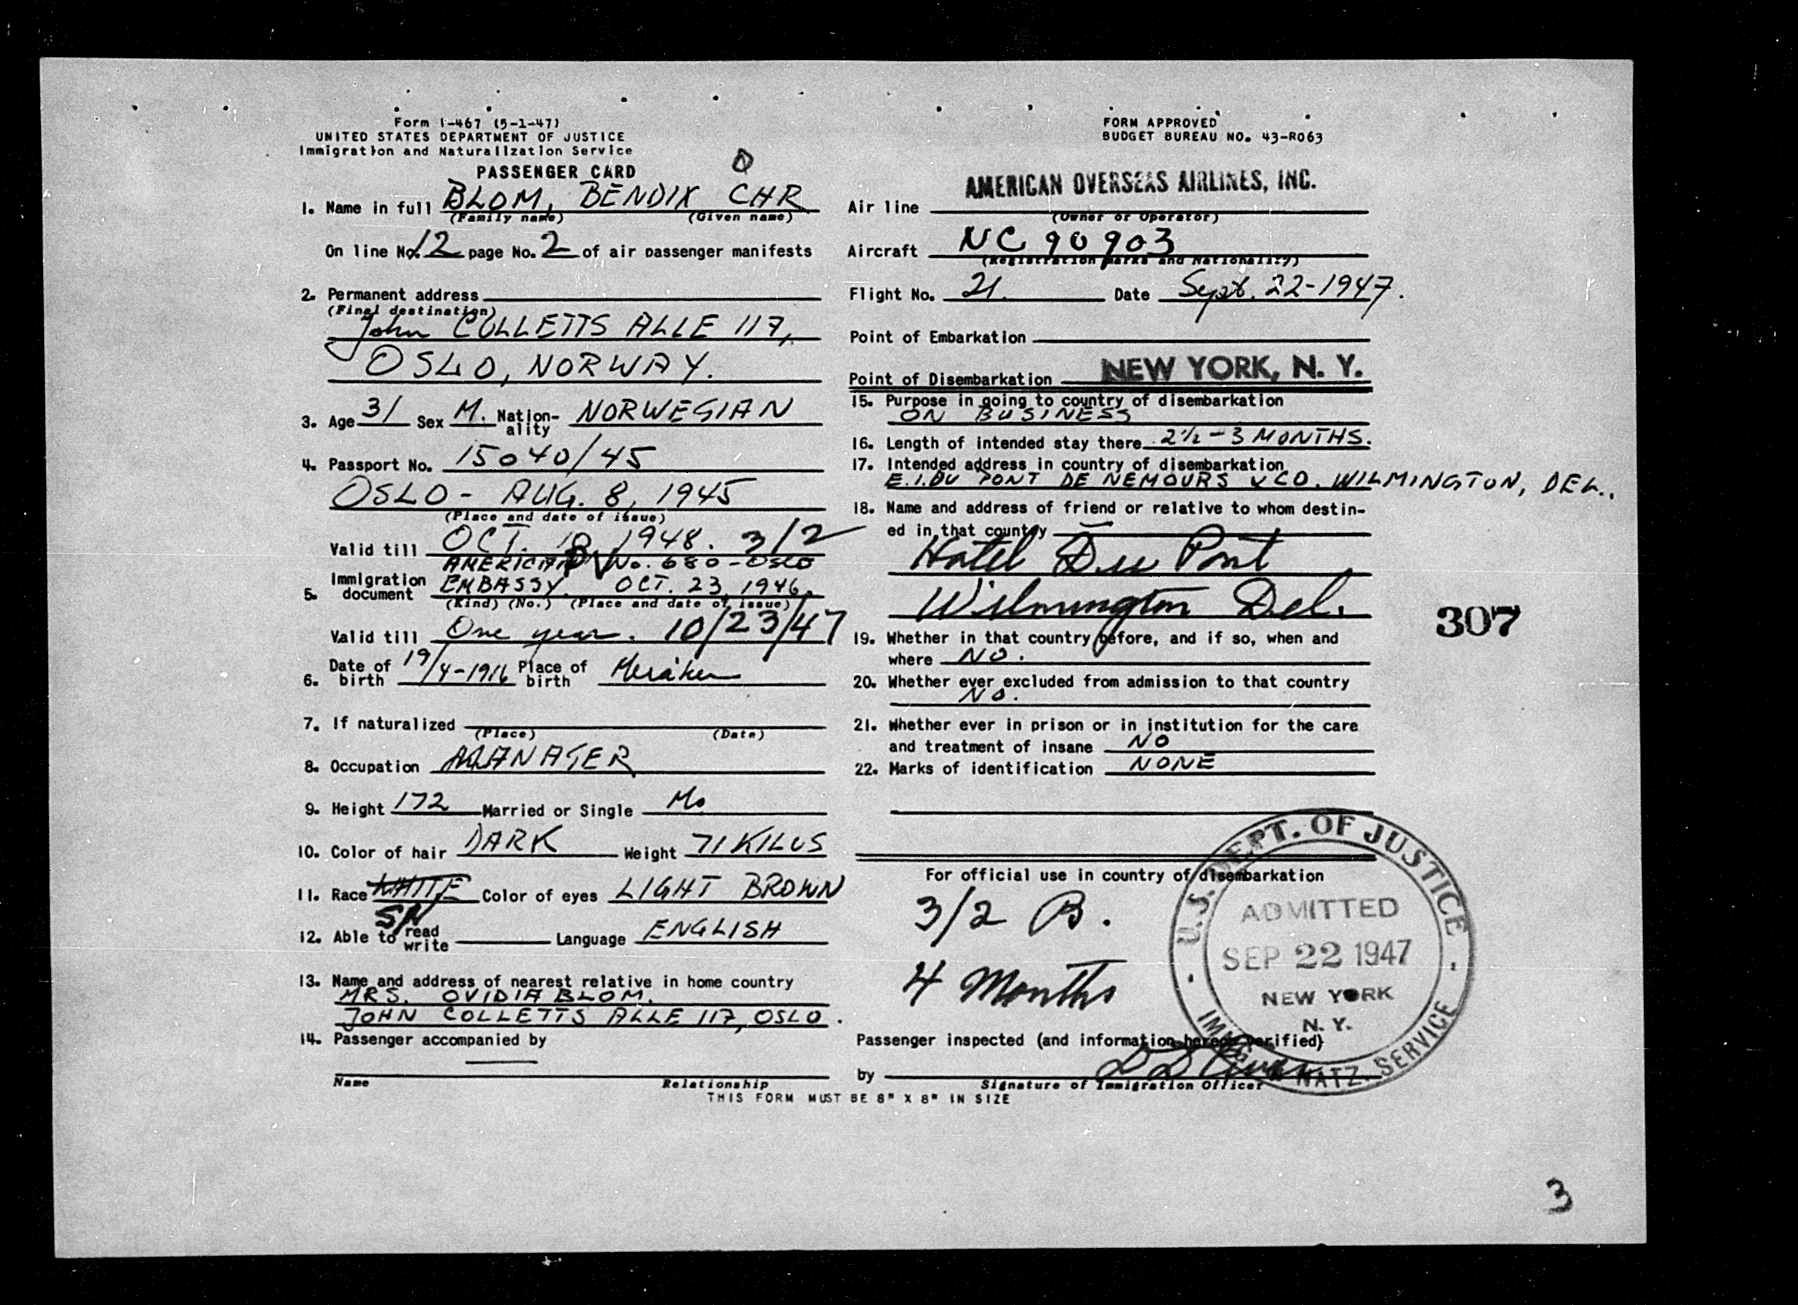 Form I-467 (5-1-47)
UNITED STATES DEPARTMENT OF JUSTICE
Immigration and Naturalization Service
PASSENGER CARD
1. Name in full BLOM, BENDIX CHR
(Family name) (Given name)
On line No. 12 page No. 2 of air passenger manifests
2. Permanent address
(Final destination)
John COLLETTS ALLE 117,
OSLO, NORWAY.
3. Age 31 Sex M. Nationality NORWEGIAN
4. Passport No. 15040/45
OSLO - AUG. 8, 1945
(Place and date of issue)
Valid till OCT. 1948. 3/2
AMERICAN PV No. 680 - OSLO
5. Immigration document EMBASSY. OCT. 23, 1946.
(Kind) (No.) (Place and date of issue)
Valid till One year. 10/23/47
6. Date of birth 19/4-1916 Place of birth Meråker
7. If naturalized
(Place) (Date)
8. Occupation MANAGER
9. Height 172 Married or Single M.
10. Color of hair DARK Weight 71 KILOS
11. Race WHITE Color of eyes LIGHT BROWN
12. Able to read write Language ENGLISH
13. Name and address of nearest relative in home country
MRS. OVIDIA BLOM.
JOHN COLLETTS ALLE 117, OSLO.
14. Passenger accompanied by
Name Relationship
FORM APPROVED
BUDGET BUREAU NO. 43-R063
AMERICAN OVERSEAS AIRLINES, INC.
Air line
(Owner or Operator)
Aircraft NC 90903
(Registration marks and Nationality)
Flight No. 21. Date Sept. 22-1947.
Point of Embarkation
Point of Disembarkation NEW YORK, N. Y.
15. Purpose in going to country of disembarkation
ON BUSINESS
16. Length of intended stay there 2 1/2 - 3 MONTHS.
17. Intended address in country of disembarkation
E.I. DU PONT DE NEMOURS & CO. WILMINGTON, DEL.
18. Name and address of friend or relative to whom destin-
ed in that country
Hotel Du Pont
Wilmington Del.
307
19. Whether in that country before, and if so, when and
where NO.
20. Whether ever excluded from admission to that country
NO.
21. Whether ever in prison or in institution for the care
and treatment of insane NO
22. Marks of identification NONE
For official use in country of disembarkation
3/2 B.
4 Months
U.S. DEPT. OF JUSTICE
ADMITTED
SEP 22 1947
NEW YORK
N. Y.
IMMIG. & NATZ. SERVICE
Passenger inspected (and information hereon verified)
by
Signature of Immigration Officer
THIS FORM MUST BE 8" X 8" IN SIZE
3